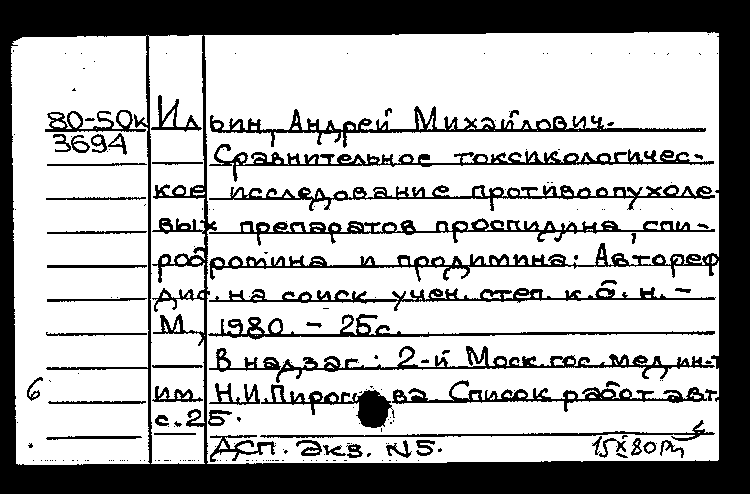 80-50к Ильин, Андрей Михайлович.
3694 Сравнительное токсикологичес-
кое исследование противоопухоле-
вых препаратов проспидина, спи-
робромина и продимина: Автореф
дис. на соиск. учен. степ. к.б.н. -
М., 1980. - 25с.
В надзаг.: 2-й Моск. гос. мед. ин-т
6 им. Н.И.Пирогова Список работ авт.
с.25.
ДСП. Экз. N5.
15 X 80